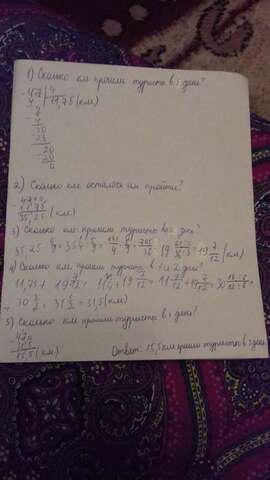 1) Сколько км прошли туристы в 1 день?
- 47 | 4
4 | 11,75 (км)
7
- 4
30
28
- 20
20
0
2) Сколько км осталось им пройти?
- 47,00
11,75
35,25 (км)
3) Сколько км прошли туристы во 2 день?
35,25 · 5/9 = 35 1/4 · 5/9 = 141/4 · 5/9 = 705/36 = 19 = 19 7/12 (км)
4) Сколько км прошли туристы в 1 и 2 день?
11,75 + 19 7/12 = 11 + 19 7/12 = 11 + 19 7/12 = 30
30 = 31 = 31,5 (км)
5) Сколько км прошли туристы в день?
- 47,0
15,5 (км)
Ответ: 15,5 км прошли туристы в 3 день